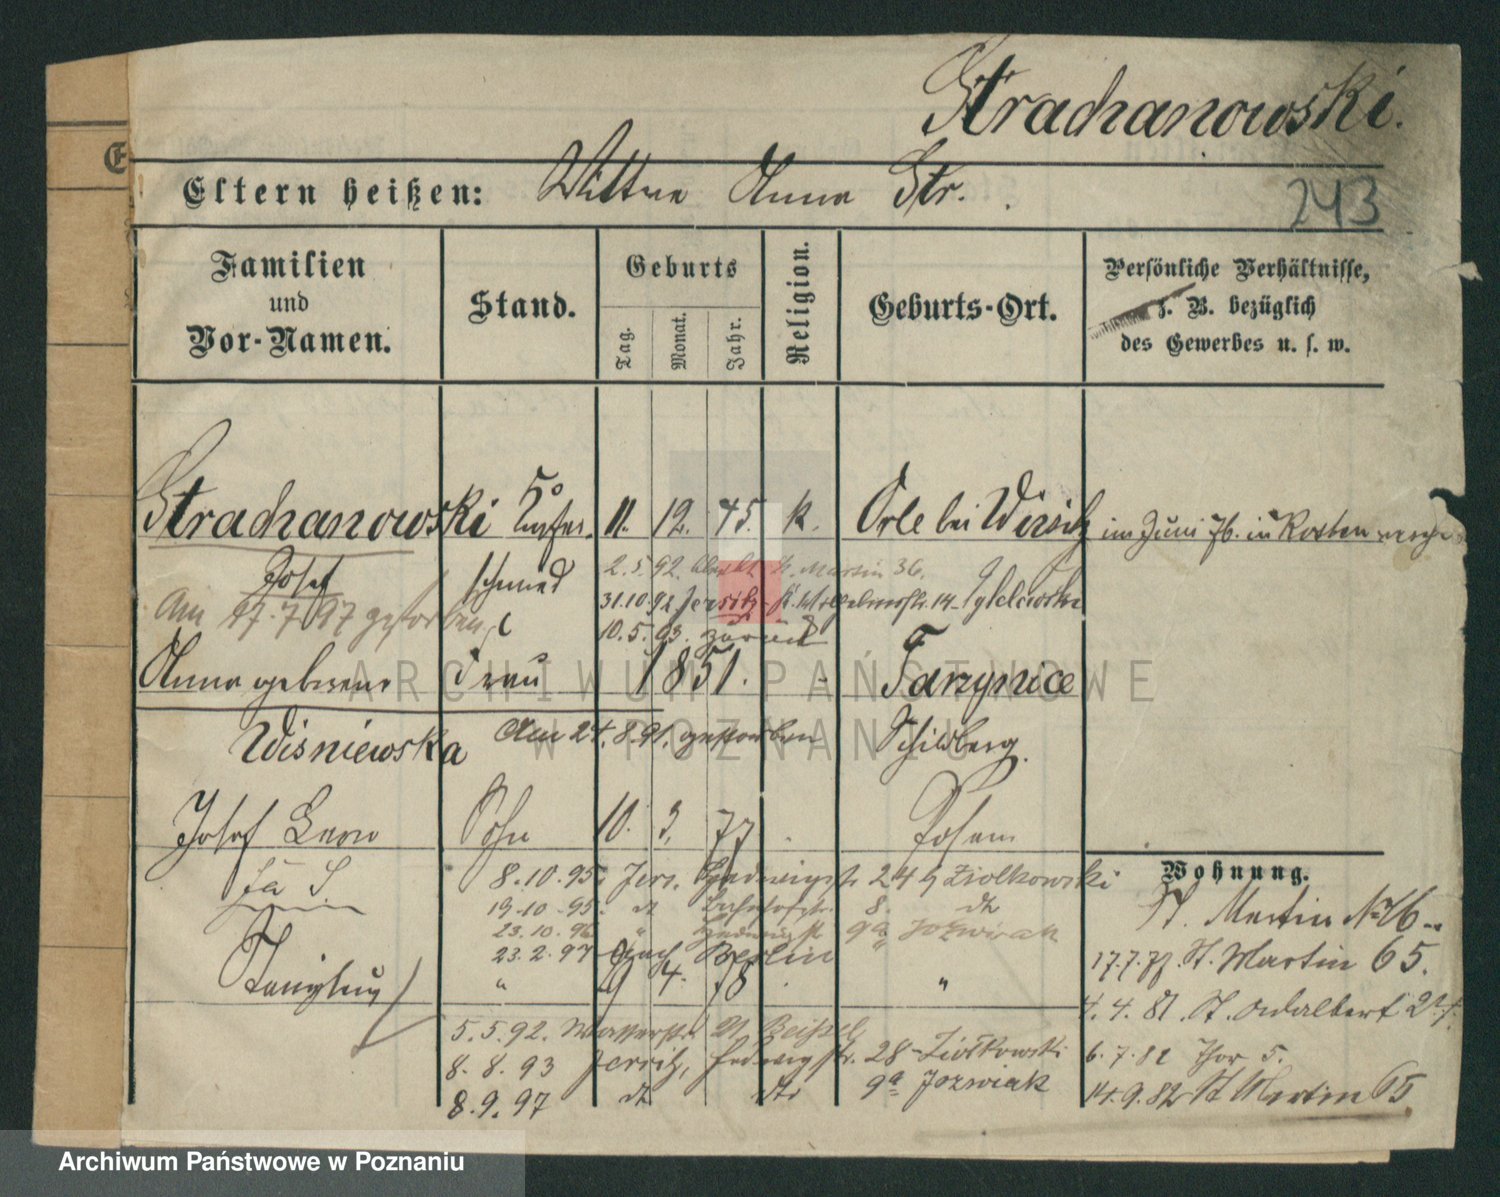 Strachanowski.
Eltern heißen: Wittwe Anna Str.
243
Familien und Vor-Namen.
Stand.
Geburts
Tag.
Monat.
Jahr.
Religion.
Geburts-Ort.
Persönliche Verhältnisse,
z. B. bezüglich
des Gewerbes u. s. w.
Strachanowski Kupfer- 11. 12. 45. k. Orle bei Wirsitz im Juni 76. in Kosten
Josef schmied 2.5.92. St. Martin 36.
31.10.92 Jersitz 14.
Am 17.7.97 gestorben 10.5.93. zurück
Anna geborene Frau 1851. Parzynice
Wisniewska Am 24.8.91. gestorben Schildberg.
Josef Leon Sohn 10. 3. 77 Posen
8.10.95. Jers. Hedwigstr. 24 Ziolkowski
Wohnung.
19.10.95. Bahnhofstr. 8.
St. Martin No 76
23.10.96 " 9a Jozwiak
23.2.97 nach Berlin "
17.7.77. St. Martin 65.
" 9 4. 78 "
4.4.81. St. Adalbert
5.5.92.
8.8.93 Jersitz, Hedwigstr. 28 Ziolkowski
6.7.82 Thor 5.
8.9.97 9a Jozwiak
14.9.82 St Martin 65
ARCHIWUM PAŃSTWOWE
W POZNANIU
Archiwum Państwowe w Poznaniu